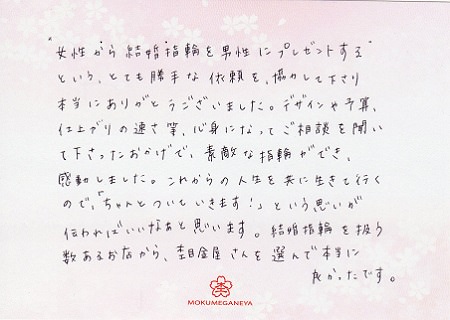 "女性から結婚指輪を男性にプレゼントする"
という、とても勝手な依頼を、協力して下さり
本当にありがとうございました。デザインや予算、
仕上がりの速さ等、心身になってご相談を聞い
て下さったおかげで、素敵な指輪ができ、
感動しました。これからの人生を共に生きて行く
ので、「ちゃんとついていきます!」という思いが
伝わればいいなあと思います。結婚指輪を扱う
数あるお店から、杢目金屋さんを選んで本当に
良かったです。
MOKUMEGANEYA